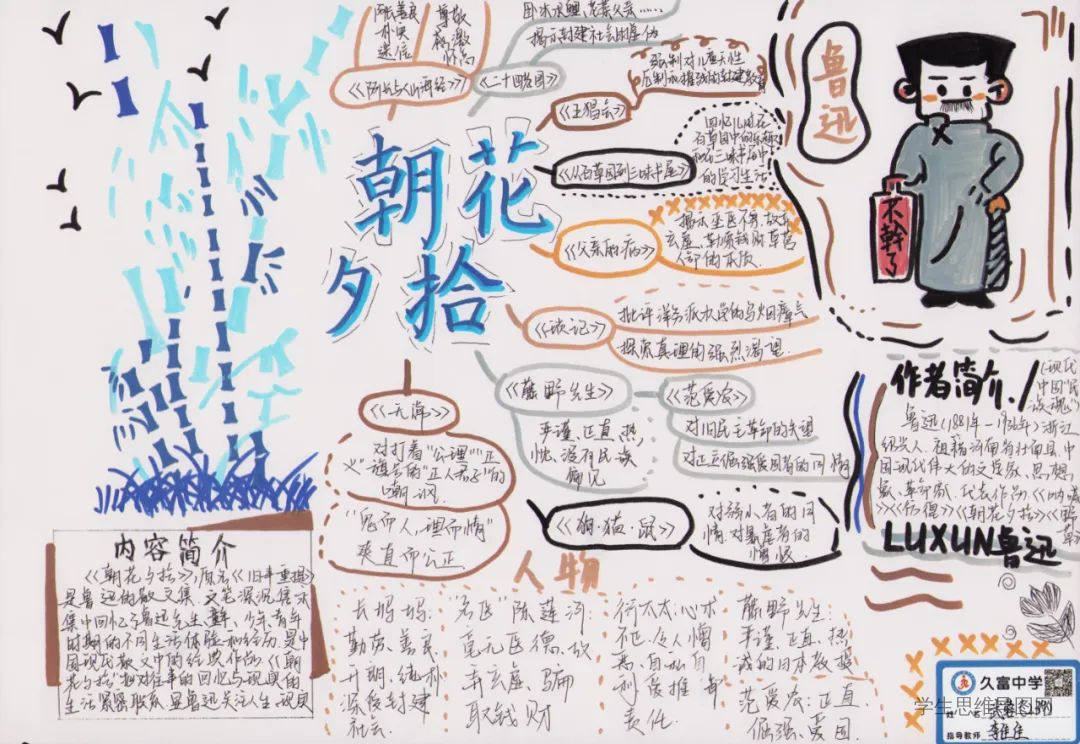 朝花
夕拾
《阿长与山海经》
阿长善良
迷信
尊敬
感激
怀念
《二十四孝图》
卧冰求鲤、老莱父亲……
揭示封建社会的虚伪
《五猖会》
强制对儿童天性
压制和摧残的封建教育
《从百草园到三味书屋》
回忆儿时在
百草园中的乐趣
和在三味书屋中
的学习生活
《父亲的病》
揭示巫医伤、故弄
玄虚、勒索钱财、草菅
人命的本质
《琐记》
批评洋务派办学的乌烟瘴气
探求真理的强烈渴望
《藤野先生》
严谨、正直、热
忱、没有民族
偏见
《范爱农》
对旧民主革命的失望
对正直倔强爱国者的同情
《无常》
对打着“公理”“正
义”旗号的“正人君子”的
嘲讽
“鬼而人,理而情”
爽直而公正
《狗·猫·鼠》
对弱小者的同
情,对暴虐者的
憎恨
鲁迅
不幹了
作者简介
(现代
中国“民
族魂”)
鲁迅(1881年—1936年)浙江
绍兴人,祖籍河南省汝南县,中
国现代伟大的文学家、思想
家、革命家,代表作品《呐喊
》《彷徨》《朝花夕拾》《野草》
LUXUN鲁迅
内容简介
《朝花夕拾》,原名《旧事重提》
是鲁迅的散文集,文笔深沉隽永
集中回忆了鲁迅先生童年、少年、青年
时期的不同生活体验和经历,是中
国现代散文中的经典作品《朝
花夕拾》把对往事的回忆与现实的
生活紧密联系,显鲁迅关注人生、现实
人物
长妈妈:
勤劳、善良
开朗、纯朴
深受封建
社会
“名医”陈莲河:
毫无医德、故
弄玄虚、骗
取钱财
衍太太:心术
不正、令人憎
恶、自私自
利、爱推卸
责任
藤野先生:
严谨、正直、热
诚的日本教授
范爱农:正直、
倔强、爱国
久富中学
学生思维导图
姓名
指导教师